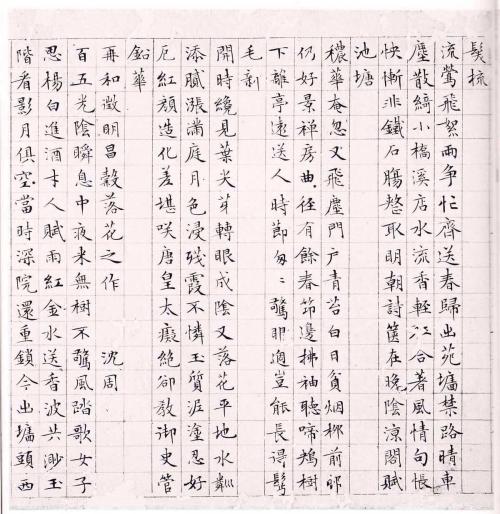 髮梳
流鶯飛絮兩爭忙齊送春歸出苑墻禁路晴車
塵散綺小橋溪店水流香輕紅合著風情句悵
怏慚非鐵石腸整取明朝詩篋在晚陰涼閣賦
池塘
穠華奄忽又飛塵門戶青苔白日貧烟柳前郊
仍好景禪房曲徑有餘春筇邊拂袖聽啼鴂樹
下離亭遠送人時節匆〻驚即過豈能長得鬢
毛新
開時纔見葉尖芽轉眼成陰又落花平地水紈
添膩漲滿庭月色浸殘霞不憐玉質泥塗忍好
厄紅顏造化差堪咲唐皇太癡絕卻教御史管
鉛華
再和徵明昌穀落花之作 沈周
百五光陰瞬息中夜來無樹不驚風踏歌女子
思楊白進酒才人賦雨紅金水送香波共渺玉
階看影月俱空當時深院還重鎖今出墻頭西